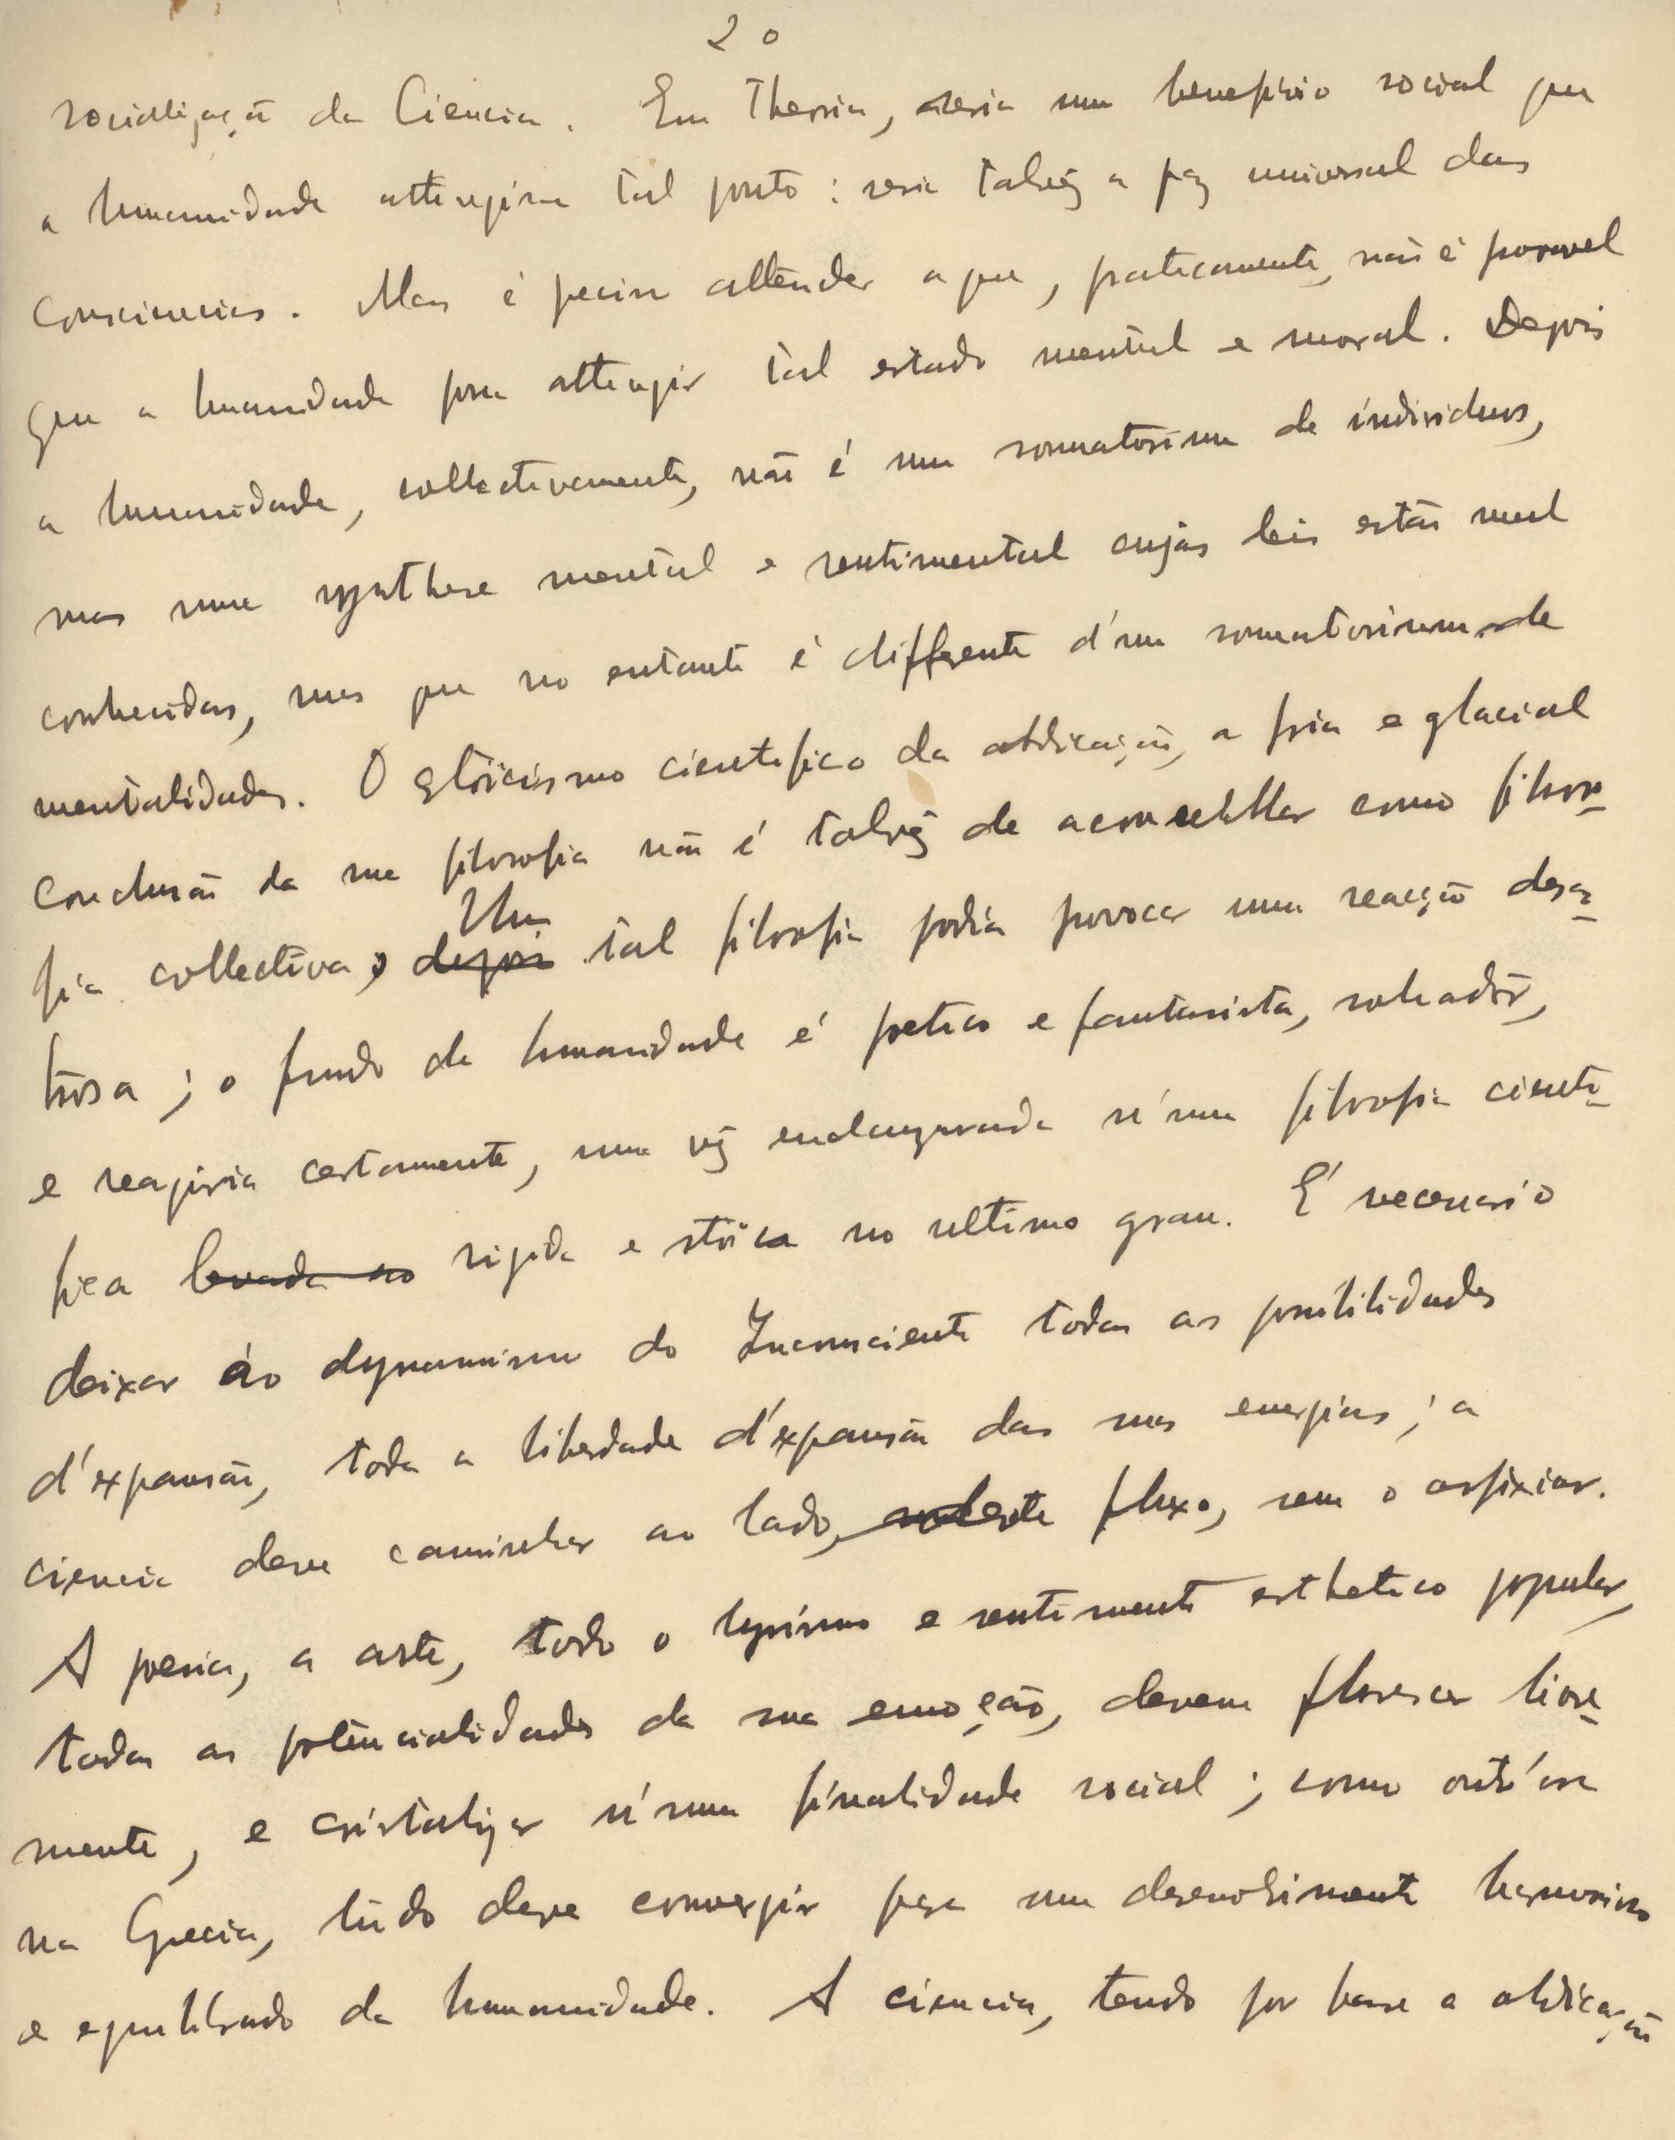 20
socialização da Ciencia. Em Theoria, seria um beneficio social que
a humanidade attingisse tal ponto: seria talvez a paz universal das
consciencias. Mas é preciso attender a que, praticamente, não é possivel
que a humanidade possa attingir tal estado mental e moral. Depois
a humanidade, collectivamente, não é um somatorium de individuos,
mas uma synthese mental e sentimental cujas leis estão mal
conhecidas, mas que no entanto é differente d'um somatorium de
mentalidades. O stoicismo cientifico da abdicação, a fria e glacial
conclusão da sua filosofia não é talvez de aconselhar como filoso-
fia collectiva; depois Uma tal filosofia podia provocar uma reacção desas-
trosa; o fundo da humanidade é poetico e fantasista, sonhadôr,
e reagiria certamente, uma vez enclausurada n'uma filosofia cienti-
fica levada ao rigida e stoïca no ultimo grau. É necessario
deixar áo dynamismo do Inconsciente todas as possibilidades
d'expansão, toda a liberdade d'expansão das suas energias; a
ciencia deve caminhar ao lado, deste fluxo, sem o asfixiar.
A poesia, a arte, todo o lyrismo e sentimento esthetico popular,
todas as potencialidades da sua emoção, devem florescer livre-
mente, e cristalizar n'uma finalidade social; como outr'ora
na Grecia, tudo deve convergir para um desenvolvimento harmonioso
e equilibrado da humanidade. A ciencia, tendo por base a abdicação